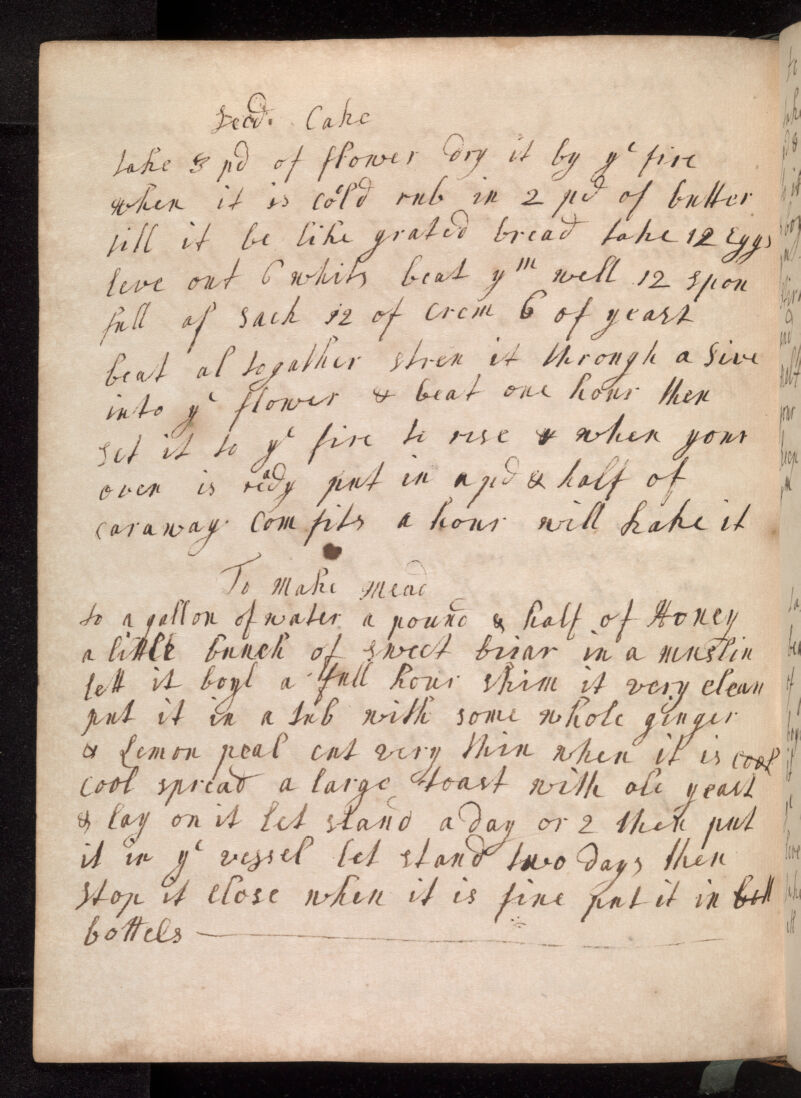 Seed Cake
take 3 pd of flower dry it by ye fire
when it is cold rub in 2 pd of butter
till it be like grated bread take 12 Eggs
leve out 6 whits beat ym well 12 spon
full of sack 12 of crem 6 of yeast
beat al togather stren it through a sive
into ye flower & beat one hour then
set it to ye fire to rise & when your
oven is redy put in a pd & half of
caraway comfits a hour will bake it
To make mead
to a gallon of water a pound & half of Honey
a little bunch of sweet briar in a muslin
lett it boyl a full hour skim it very clean
put it in a tub with some whole ginger
& Lemon peal cut very thin when it is cool
cool spread a large toast with ale yeast
& lay on it let stand a day or 2 then put
it in ye vessel let stand two days then
stop it close when it is fine put it in bott
bottels